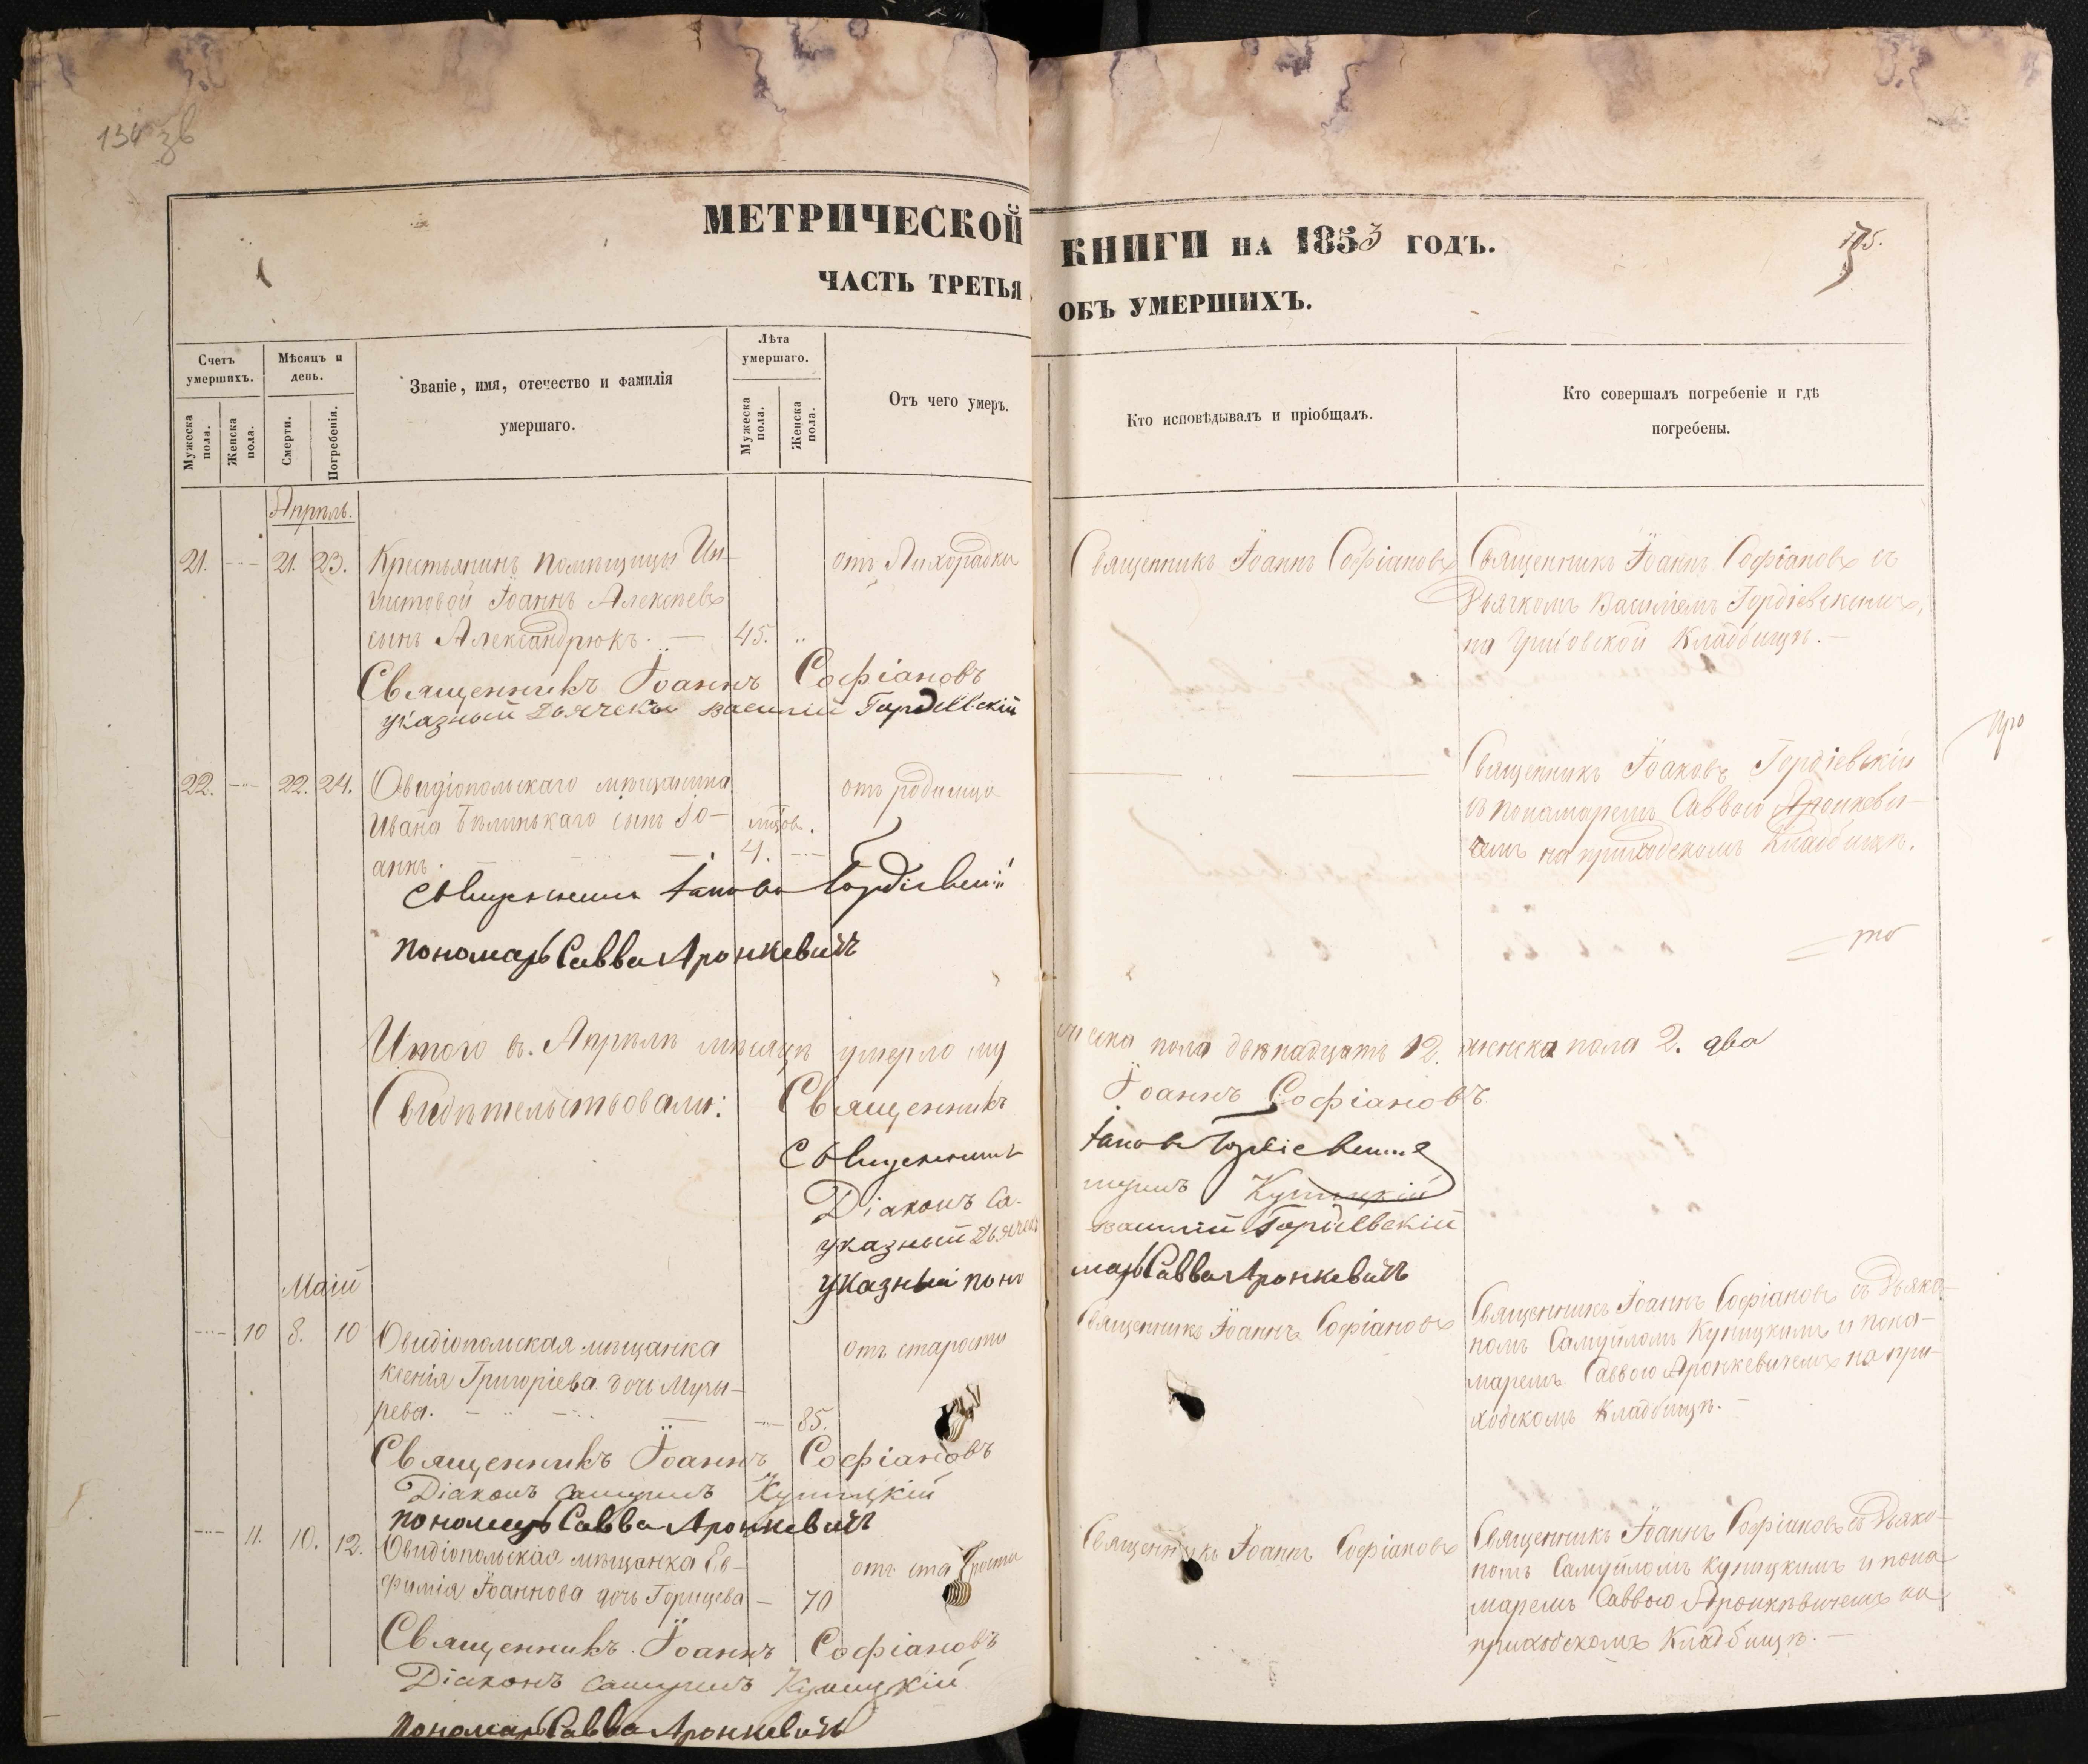 134 зв
МЕТРИЧЕСКОЙ КНИГИ НА 1853 ГОДЪ.
175.
ЧАСТЬ ТРЕТЬЯ ОБЪ УМЕРШИХЪ.
Счетъ умершихъ.
Мѣсяцъ и день.
Званіе, имя, отечество и фамилія умершаго.
Лѣта умершаго.
Отъ чего умеръ.
Кто исповѣдывалъ и пріобщалъ.
Кто совершалъ погребеніе и гдѣ погребены.
Мужеска пола.
Женска пола.
Смерти.
Погребенія.
Мужеска пола.
Женска пола.
Апрѣль.
21. 21. 23. Крестьянинъ помѣщицы
Іоаннъ Алексѣевъ
сынъ Александрюкъ. 45.
отъ Лихорадки
Священникъ Іоаннъ Софіановъ
Священникъ Іоаннъ Софіановъ съ
Дьячкомъ Василіемъ Гордіевскимъ,
на Кладбищѣ.
Священникъ Іоаннъ Софіановъ
указный Дьячекъ Василій Гордіевскій
22. 22. 24. Овидіопольскаго мѣщанина
Ивана Бѣлинькаго сынъ Іо-
аннъ. 4.
отъ родимца
Священникъ Іаковъ Гордіевскій
съ пономаремъ Саввою Аронкеви-
чемъ на приходскомъ Кладбищѣ.
Священникъ Іаковъ Гордіевскій
пономарь Савва Аронкевичъ
Итого въ Апрѣлѣ мѣсяцѣ умерло мужеска пола двѣнадцать 12. женска пола 2. два
Свидѣтельствовали: Священникъ Іоаннъ Софіановъ.
Священникъ Іаковъ Гордіевскій
Діаконъ Самуилъ Куницкій
указный Дьячекъ Василій Гордіевскій
указный пономарь Савва Аронкевичъ
Маій
10 8. 10 Овидіопольская мѣщанка
Ксенія Григоріева дочь Музы-
рева. 85.
отъ старости
Священникъ Іоаннъ Софіановъ
Священникъ Іоаннъ Софіановъ съ Дьяко-
номъ Самуиломъ Куницкимъ и поно-
маремъ Саввою Аронкевичемъ на при-
ходскомъ Кладбищѣ.
Священникъ Іоаннъ Софіановъ
Діаконъ Самуилъ Куницкій
пономарь Савва Аронкевичъ
11. 10. 12. Овидіопольская мѣщанка Ев-
фимія Іоаннова дочь Горищева 70
отъ старости
Священникъ Іоаннъ Софіановъ
Священникъ Іоаннъ Софіановъ съ Дьяко-
номъ Самуиломъ Куницкимъ и поно-
маремъ Саввою Аронкѣвичемъ на
приходскомъ Кладбищѣ.
Священникъ Іоаннъ Софіановъ
Діаконъ Самуилъ Куницкій
Пономарь Савва Аронкевичъ